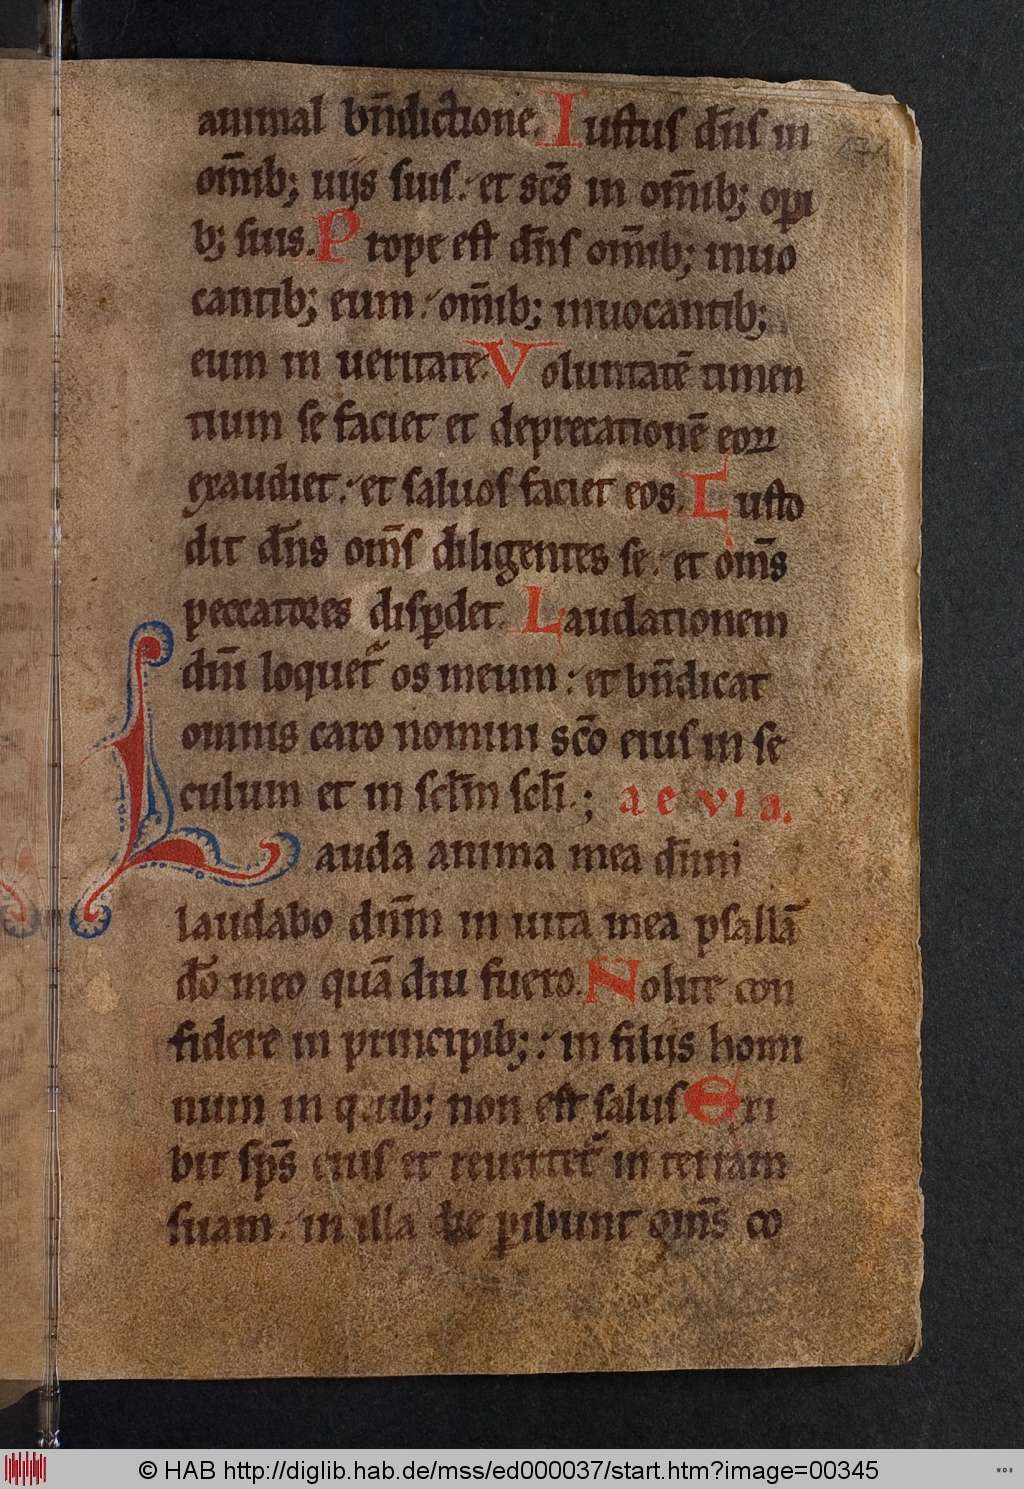 animal bn̄dictione. Iustus dn̄s in
om̄ib; uijs suis. et sc̄s in om̄ib; op̱i
b; suis. Prope est dn̄s om̄ib; inuo
cantib; eum. om̄ib; inuocantib;
eum in ueritate. Voluntatē timen
tium se faciet et deprecationē eoꝝ
exaudiet. et saluos faciet eos. Custo
dit dn̄s om̄s diligentes se. et om̄s
peccatores disꝑdet. Laudationem
dn̄i loquet᷑ os meum. et bn̄dicat
omnis caro nomini sc̄o eius in se
culum et in sclm̄ scl̄i.; a e v i a.
Lauda anima mea dn̄m
laudabo dn̄m in uita mea psallā
dō meo quādiu fuero. Nolite con
fidere in principib;. in filijs homi
num in quib; non est salus. Exi
bit sp̄s eius et reuertet᷑ in terram
suam. in illa die ꝑibunt om̄s co
© HAB http://diglib.hab.de/mss/ed000037/start.htm?image=00345